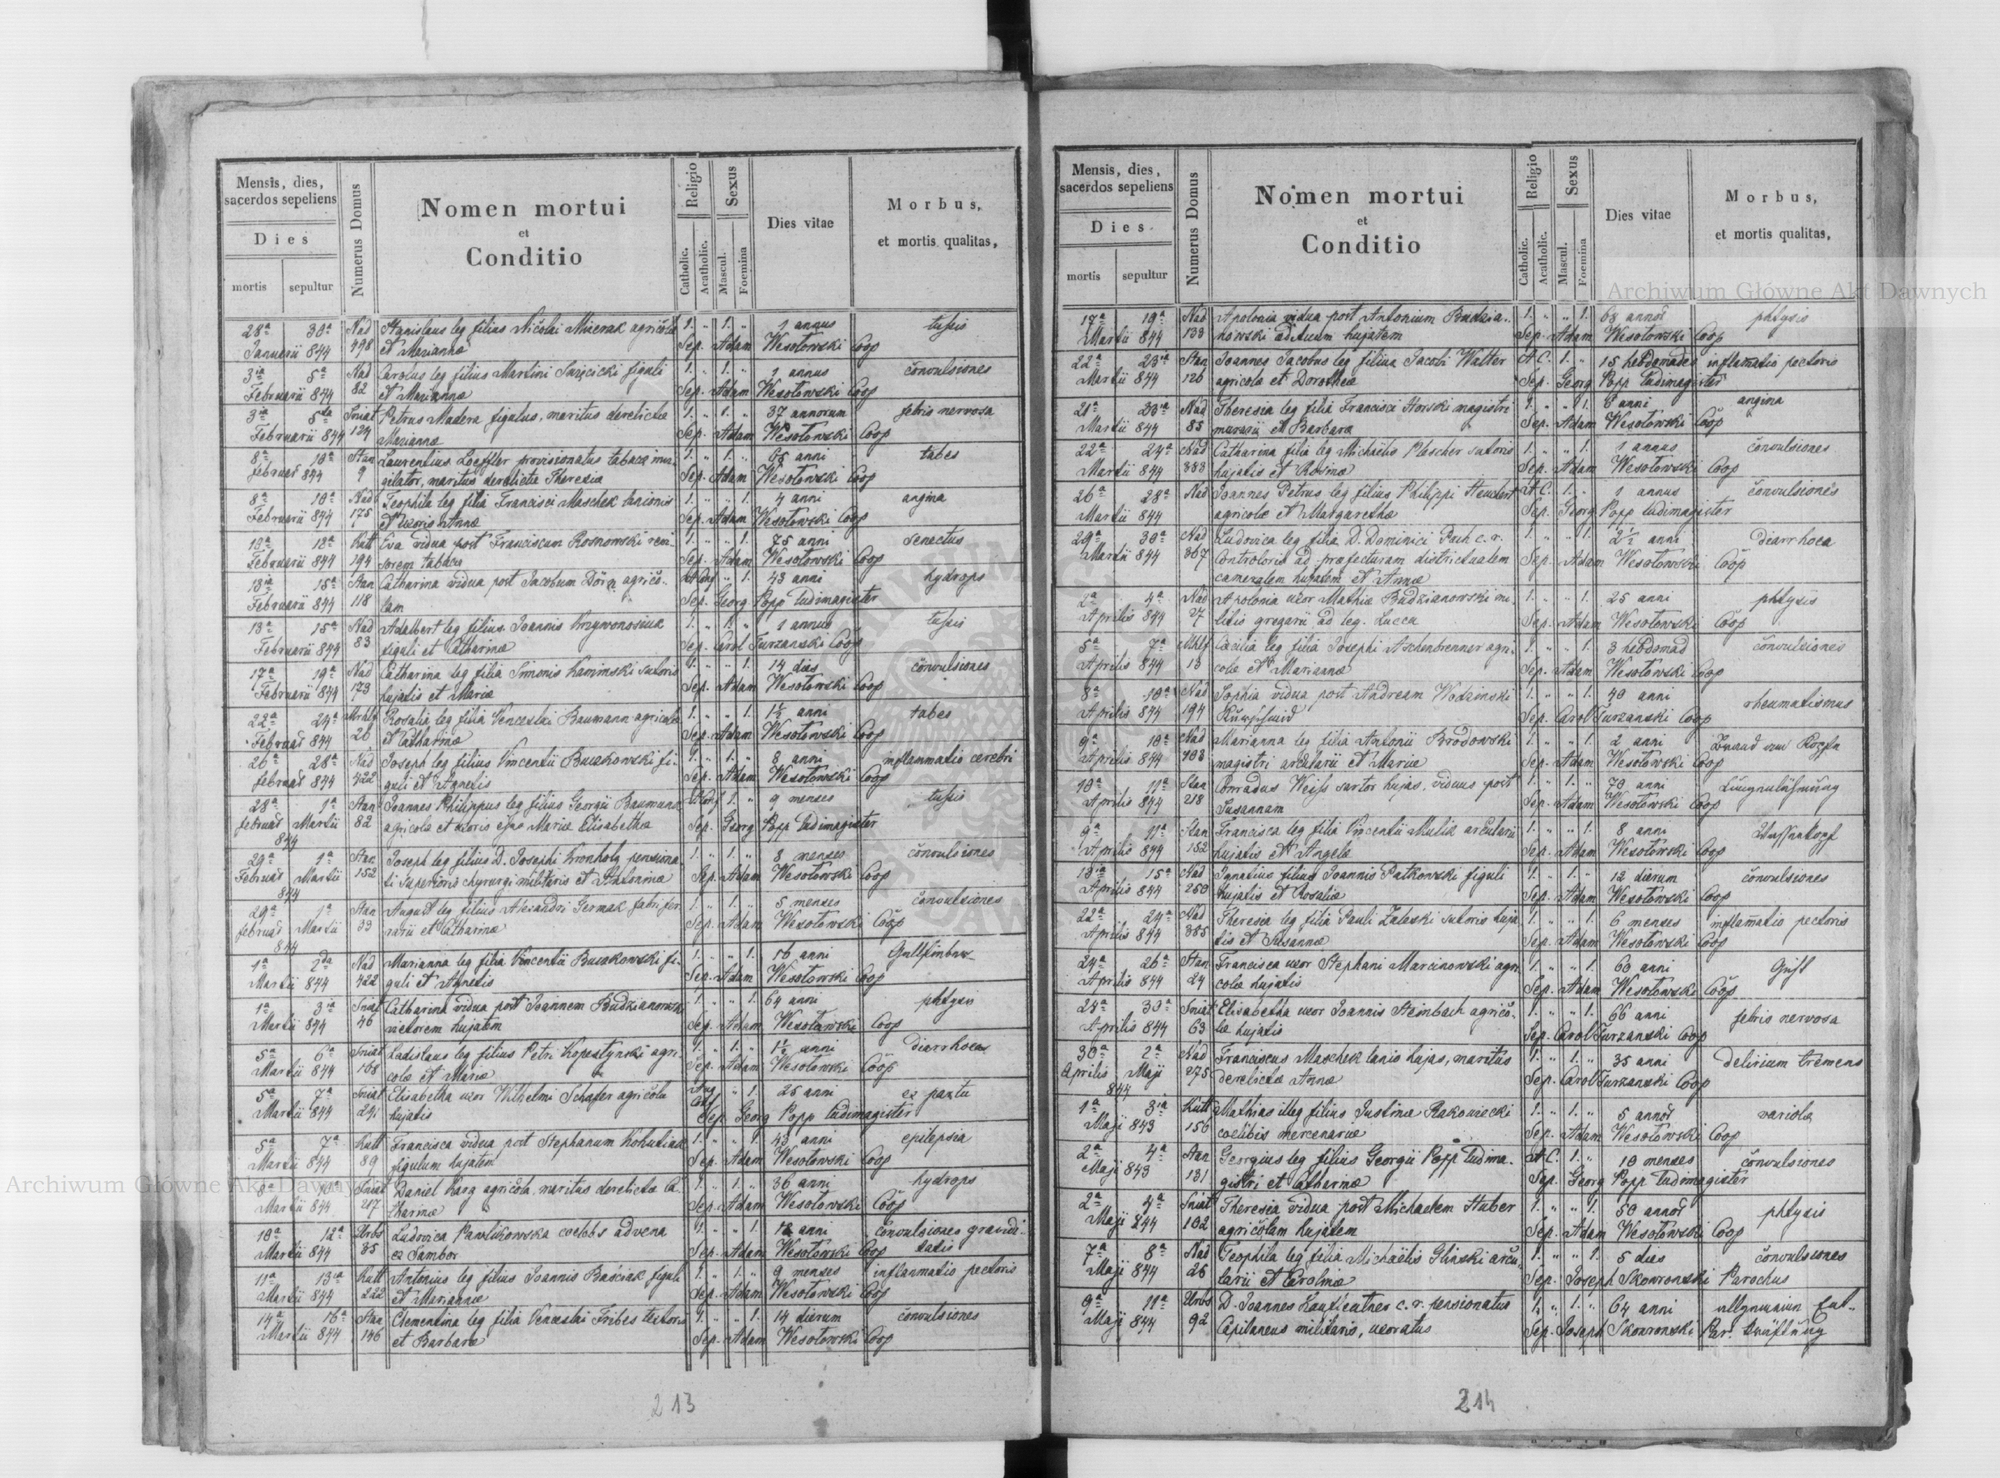 Mensis, dies,
sacerdos sepeliens
Dies
mortis sepultur
Numerus Domus
Nomen mortui
et
Conditio
Religio
Catholic.
Acatholic.
Sexus
Mascul.
Foemina
Dies vitae
Morbus,
et mortis qualitas,
28ª 30ª Nad Stanislaus leg filius Nicolai agricolæ 1. " 1. " 1 annus tussis
Januarii 844 398 et Mariannæ Sep. Adam Wesołowski Coop
3ia 5ª Nad Carolus leg filius Martini figuli 1. " 1. " 1 annus convulsiones
Februarii 844 82 et Mariannæ Sep. Adam Wesołowski Coop
3ia 5ta Sniat Petrus Madera figulus, maritus derelictæ 1. " 1. " 37 annorum febris nervosa
Februarii 844 124 Mariannæ Sep. Adam Wesołowski Coop
8ª 10ª Stan Laurentius Loeffler provisionatus tabacæ 1. " 1. " 65 anni tabes
februar 844 9 maritus derelictæ Theresiæ Sep. Adam Wesołowski Coop
8ª 10ª Nad Teophila leg filia Francisci Maschek lanionis 1. " " 1. 4 anni angina
Februarii 844 175 et uxoris Annæ Sep. Adam Wesołowski Coop
Eva vidua post Franciscum Rosnowski 1. " " 1. 75 anni senectus
Februarii 844 194 Sep. Adam Wesołowski Coop
13ia 15ª Catharina vidua post Jacobum " 1. 43 anni hydrops
Februarii 844 118 Sep. Georg Popp ludimagister
13ª 15ª Nad Adalbert leg filius Joannis Krzywonosiuk 1. " 1. " 1 annus tussis
Februarii 844 83 figuli et Catharinæ Sep. Carol Turzanski Coop
17ª 19ª Nad Catharina leg filia Simonis Kaminski sutoris 1. " " 1. 14 dies convulsiones
Februarii 844 173 hujatis et Mariæ Sep. Adam Wesołowski Coop
22ª 24ª Rosalia leg filia Venceslai Baumann agricolæ 1. " " 1. 1½ anni tabes
Februar 844 26 et Catharinæ Sep. Adam Wesołowski Coop
26ª 28ª Nad Joseph leg filius Vincentii Buczkowski fi- 1. " 1. " 8 anni inflammatio cerebri
februar 844 422 guli et Agnetis Sep. Adam Wesołowski Coop
28ª 1ª Joannes Philippus leg filius Georgii Baumann 1. " 9 menses tussis
februar Martii 82 agricolæ et uxoris ejus Mariæ Elisabethæ Sep. Georg Popp ludimagister
844
29ª 1ª Stan Joseph leg filius D. Josephi Kronholz pensiona- 1. " 1. " 8 menses convulsiones
Februar Martii 152 ti superioris chyrurgi militaris et Antoninæ Sep. Adam Wesołowski Coop
844
29ª 1ª Stan August leg filius Alexandri Germak fabri fer- 1. " 1. " 5 menses convulsiones
februar Martii 33 rarii et Catharinæ Sep. Adam Wesołowski Coop
844
1ª 2da Nad Marianna leg filia Vincentii Buczkowski fi- 1. " " 1. 16 anni
Martii 844 422 guli et Agnetis Sep. Adam Wesołowski Coop
1ª 3ia Sniat Catharina vidua post Joannem 1. " " 1. 64 anni phtysis
Martii 844 46 vietorem hujatem Sep. Adam Wesołowski Coop
5ª 6ª Sniat Ladislaus leg filius Petri agri- 1. " 1. " 1½ anni diarrhoea
Martii 844 108 colæ et Mariæ Sep. Adam Wesołowski Coop
5ª 7ª Sniat Elisabetha uxor Wilhelmi Schafer agricolæ " 1. 25 anni ex partu
Martii 844 241 hujatis Sep. Georg Popp ludimagister
5ª 7ª Kutt Francisca vidua post Stephanum 1. " " 1. 43 anni epilepsia
Martii 844 89 figulum hujatem Sep. Adam Wesołowski Coop
8ª 10ª Sniat Daniel Harz agricola, maritus derelictæ Ca- 1. " 1. " 36 anni hydrops
Martii 844 217 tharinæ Sep. Adam Wesołowski Coop
10ª 12ª Urbs Ludovica Pawlikowska coelebs advena 1. " " 1. anni convulsiones
Martii 844 35 ex Sambor Sep. Adam Wesołowski Coop
11ª 13ia Kutt Antonius leg filius Joannis Baściak figuli 1. " 1. " 9 menses inflammatio pectoris
Martii 844 222 et Mariannæ Sep. Adam Wesołowski Coop
14ª 16ª Stan Clementina leg filia Venceslai Fribes textoris 1. " " 1. 14 dierum convulsiones
Martii 844 146 et Barbaræ Sep. Adam Wesołowski Coop
213
Mensis, dies,
sacerdos sepeliens
Dies
mortis sepultur
Numerus Domus
Nomen mortui
et
Conditio
Religio
Catholic.
Acatholic.
Sexus
Mascul.
Foemina
Dies vitae
Morbus,
et mortis qualitas,
17ª 19ª Nad Apolonia vidua post Antonium Budzia- 1. " " 1. 63 annor phtysis
Martii 844 133 nowski hujatem Sep. Adam Wesołowski Coop
22ª 23ia Stan Joannes Jacobus leg filius Jacobi Walter A.C. 1. " 15 hebdomades inflamatio pectoris
Martii 844 126 agricolæ et Dorotheæ Sep. Georg Popp ludimagister
21ª 23ia Nad Theresia leg filia Francisci Horski magistri 1. " " 1. anni angina
Martii 844 85 murarii et Barbaræ Sep. Adam Wesołowski Coop
22ª 24ª Nad Catharina filia leg Michaelis Plescher sutoris 1. " " 1. 1 annus convulsiones
Martii 844 383 hujatis et Rosinæ Sep. Adam Wesołowski Coop
26ª 28ª Nad Joannes Petrus leg filius Philippi A.C. 1. " 1 annus convulsiones
Martii 844 agricolæ et Margarethæ Sep. Georg Popp ludimagister
29ª 30ª Nad Ludovica leg filia D. Dominici c.r. 1. " " 1. 2½ anni diarrhoea
Martii 844 367 Controloris ad præfecturam districtualem Sep. Adam Wesołowski Coop
cameralem hujatem et Annæ
2ª 4ª Nad Apolonia uxor Mathiæ Budzianowski mi- 1. " " 1. 25 anni phtysis
Aprilis 844 27 litis gregarii ad leg. Lucca Sep. Adam Wesołowski Coop
5ª 7ª Cæcilia leg filia Josephi Aschenbrenner agri- 1. " " 1. 3 hebdomad convulsiones
Aprilis 844 13 colæ et Mariannæ Sep. Adam Wesołowski Coop
8ª 10ª Nad Sophia vidua post Andream Wodzinski 1. " " 1. 40 anni rheumatismus
Aprilis 844 194 Sep. Carol Turzanski Coop
9ª 10ª Nad Marianna leg filia Antonii Brodowski 1. " " 1. 2 anni
Aprilis 844 408 magistri arcularii et Mariæ Sep. Adam Wesołowski Coop
10ª 11ª Stan Conradus Weiss sartor hujas, viduus post 1. " 1. " 70 anni
Aprilis 844 218 Susannam Sep. Adam Wesołowski Coop
9ª 11ª Stan Francisca leg filia Vincentii Mulik arcularii 1. " " 1. 8 anni
Aprilis 844 152 hujatis et Angelæ Sep. Adam Wesołowski Coop
13ia 15ª Nad Ignatius filius Joannis Patkowski figuli 1. " 1. " 12 dierum convulsiones
Aprilis 844 250 hujatis et Rosaliæ Sep. Adam Wesołowski Coop
24ª Nad Theresia leg filia Pauli Zaleski sutoris huja- 1. " " 1. 6 menses inflamatio pectoris
Aprilis 844 385 tis et Susannæ Sep. Adam Wesołowski Coop
24ª 26ª Stan Francisca uxor Stephani Marcinowski agri- 1. " " 1. 60 anni
Aprilis 844 24 colæ hujatis Sep. Adam Wesołowski Coop
28ª 30ª Sniat Elisabetha uxor Joannis Steinbach agrico- 1. " " 1. 66 anni febris nervosa
Aprilis 844 63 læ hujatis Sep. Carol Turzanski Coop
30ª 2ª Nad Franciscus Maschek lanio hujas, maritus 1. " 1. " 35 anni delirium tremens
Aprilis Maji 275 derelictæ Annæ Sep. Carol Turzanski Coop
844
1ª 3ia Kutt Mathias illeg filius Justinæ Rakowiecki 1. " 1. " 5 annor variola
Maji 843 156 coelibis mercenariæ Sep. Adam Wesołowski Coop
2ª 4ª Stan Georgius leg filius Georgii Popp ludima- A.C. 1. " 10 menses convulsiones
Maji 843 131 gistri et Catharinæ Sep. Georg Popp ludimagister
2ª 4ª Sniat Theresia vidua post Michaelem Huber 1. " " 1. 50 annor phtysis
Maji 844 102 agricolam hujatem Sep. Adam Wesołowski Coop
7ª 8ª Nad Teophila leg filia Michaëlis Gliński arcu- 1. " " 1. 5 dies convulsiones
Maji 844 26 larii et Carolinæ Sep. Joseph Skowronski Parochus
9ª 11ª Urbs D. Joannes c.r. pensionatus 1. " 1. " 64 anni
Maji 844 92 Capitaneus militaris, uxoratus Sep. Joseph Skowronski Par.
214
Archiwum Główne Akt Dawnych
Archiwum Główne Akt Dawnych